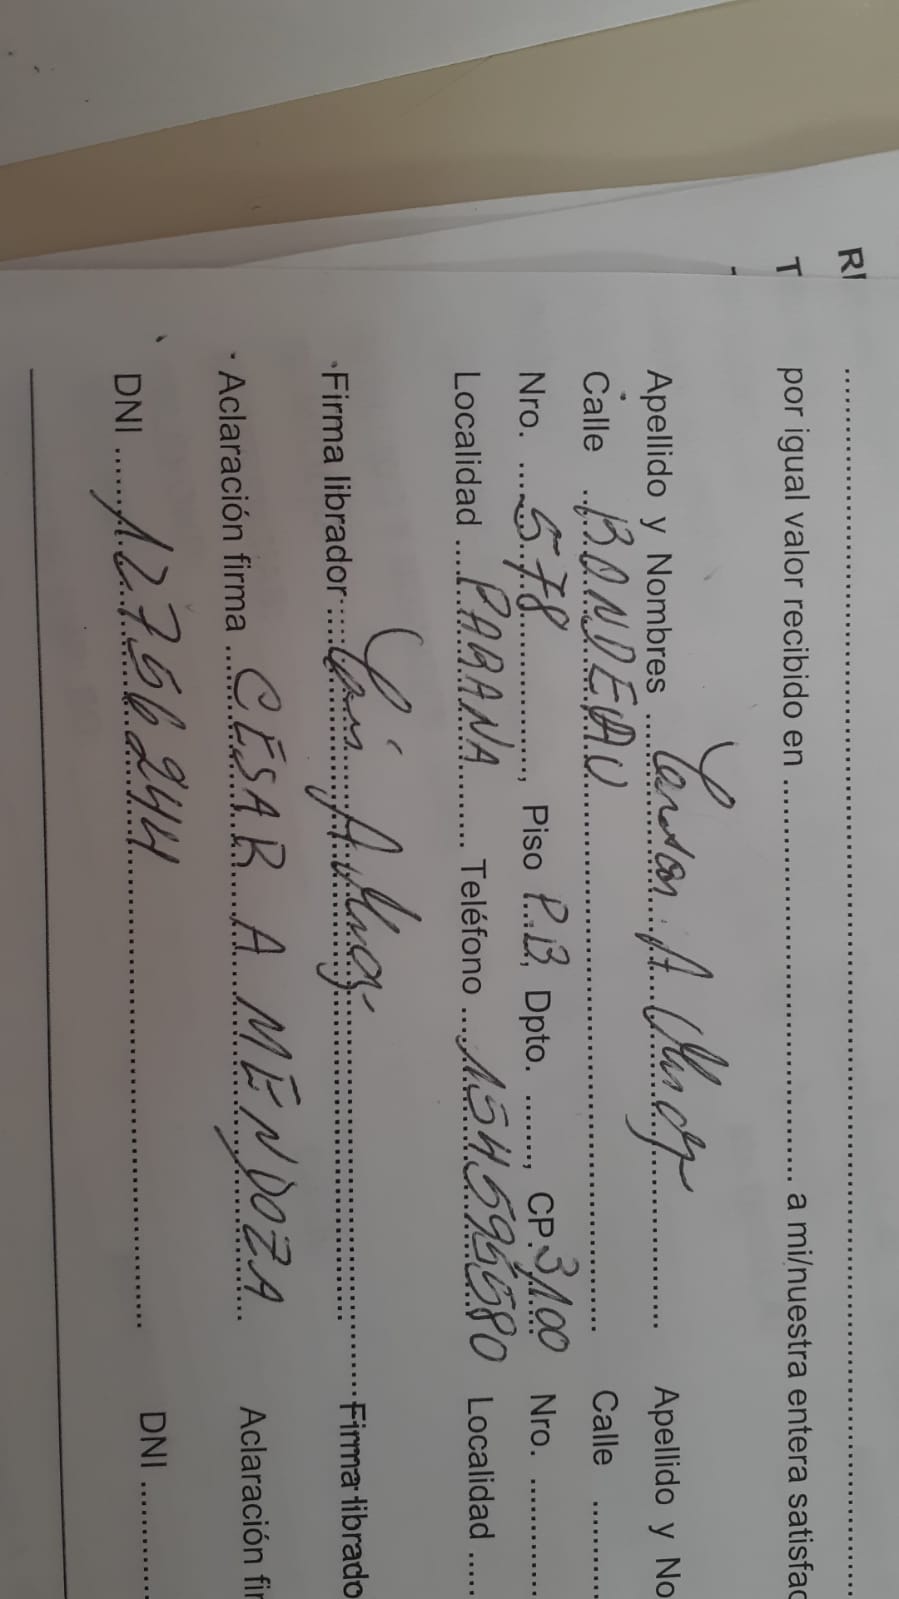 RI
T
por igual valor recibido en ........................ a mi/nuestra entera satisfac
Apellido y Nombres .... A ........ Apellido y No
Calle ..BONDEAU........................ Calle .......
Nro. ....578..........., Piso P.B, Dpto. ......, CP.3100 Nro. ..........
Localidad ....PARANA...... Teléfono ...154595580 Localidad .....
Firma librador :... A ........................ Firma librado
Aclaración firma ....CESAR A MENDOZA. Aclaración fir
DNI ......12756244........................ DNI ..........